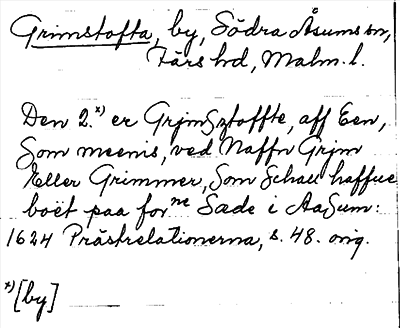 Grimstofta, by, Södra Åsums sn,
Färs hd, Malm. l.
Den 2.ˣ⁾ er Grjmsztoffte, aff Een,
som meenis, ved Naffn Grjm
Eller Grimmer, som schall haffue
boët paa forⁿᵉ Sæde i AaSum:
1624 Prästrelationerna, s. 48. orig.
x) [by]